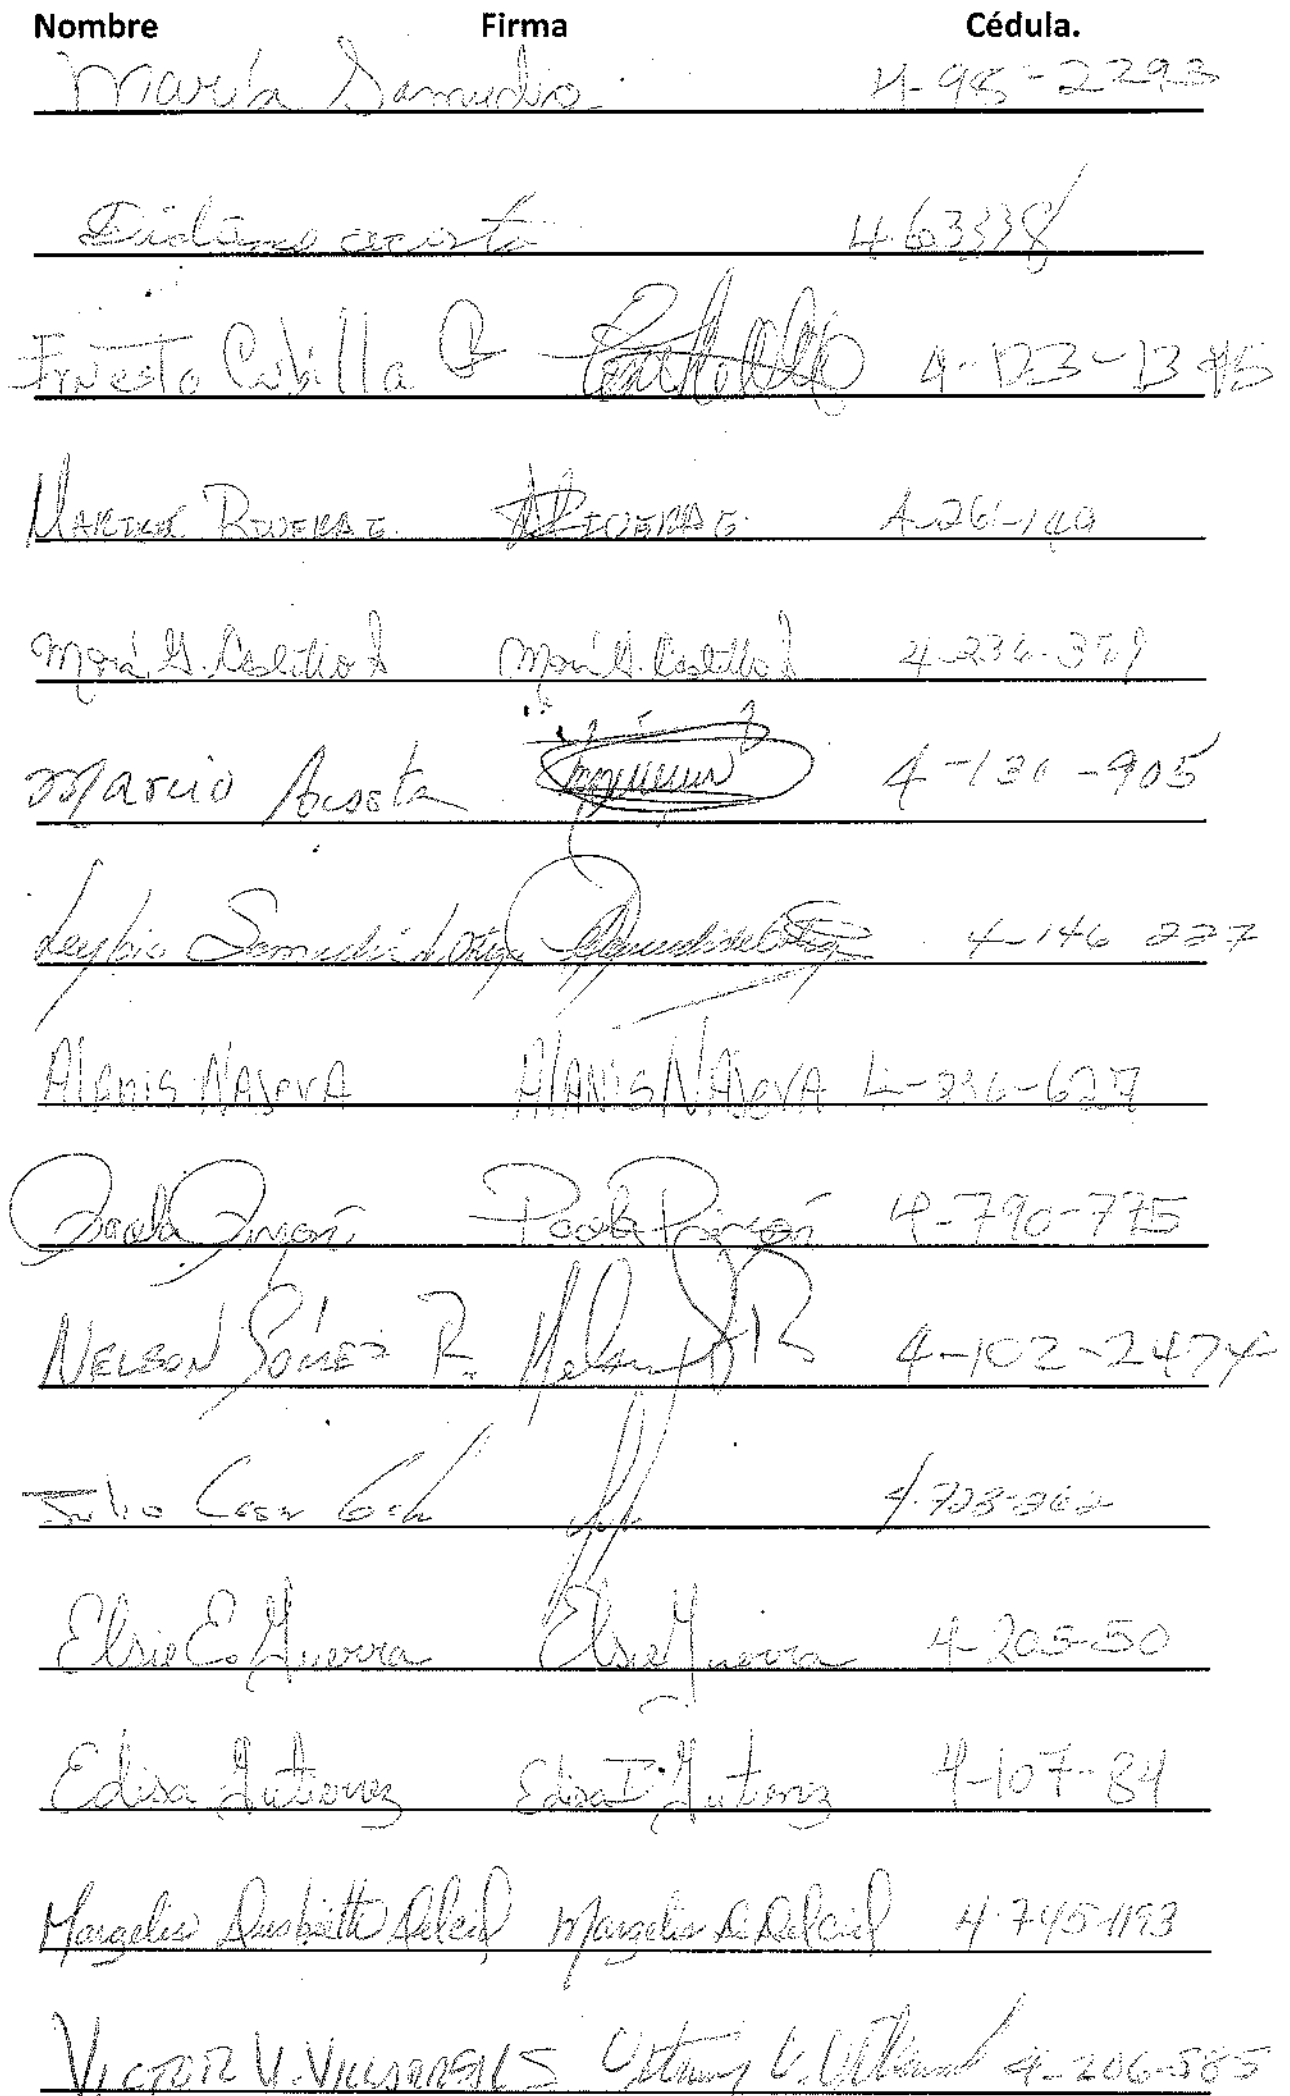 Nombre Firma Cédula.
María Samudio 4-98-2293
acosta 4-63338
Ernesto Cubilla C 4-123-1345
Rivera G. Rivera G.
María G. Castillo María G. Castillo 4-236-
Marcio Acosta 4-130-905
Leybia Samudio d Ortega 4-146 227
Alanis NAJERA AlANiS NAJERA 4-836-627
Paola Pinzón Paola Pinzón 4-790-775
NELSON GÓMEZ R. Nelson R 4-102-2474
Julio Cesar 4-728-262
Elsie E. Guerra Elsie Guerra 4-205-50
Edisa Gutierrez Edisa I. Gutierrez 4-107-84
Margelis Delcid Margelis D. Delcid 4-745-1193
VICTOR V. VILLARREAL S 4-206-585